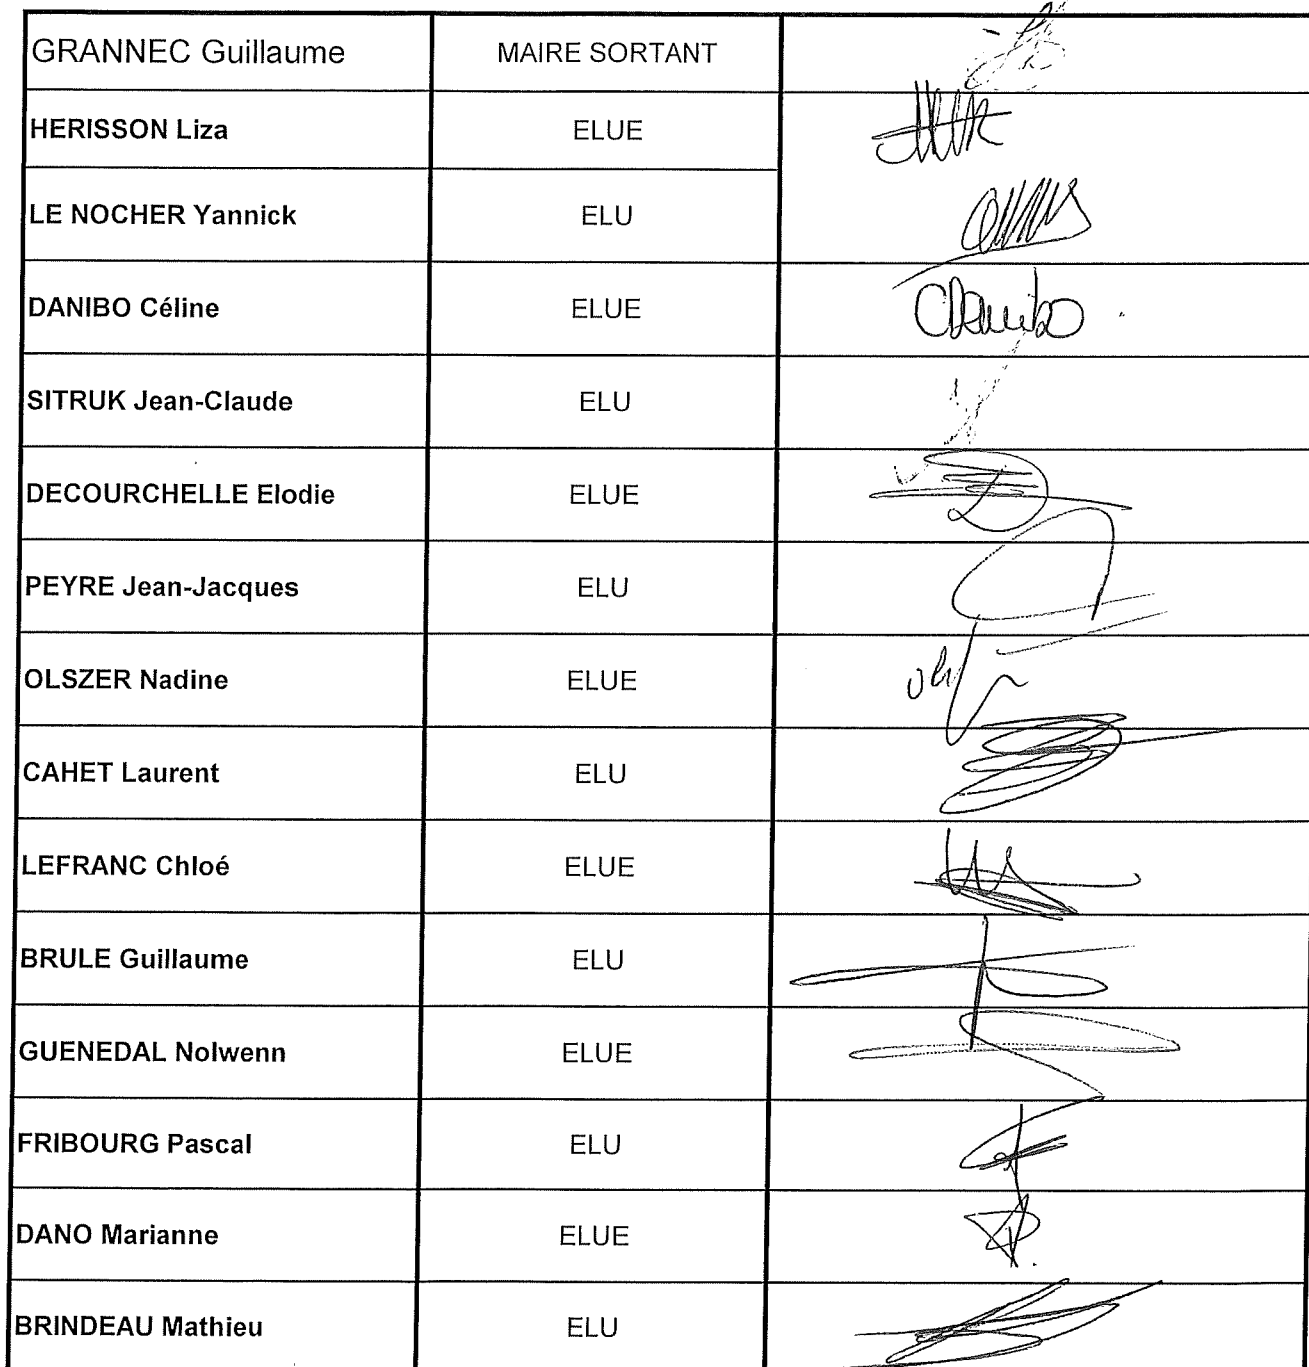 GRANNEC Guillaume MAIRE SORTANT
HERISSON Liza ELUE
LE NOCHER Yannick ELU
DANIBO Céline ELUE
SITRUK Jean-Claude ELU
DECOURCHELLE Elodie ELUE
PEYRE Jean-Jacques ELU
OLSZER Nadine ELUE
CAHET Laurent ELU
LEFRANC Chloé ELUE
BRULE Guillaume ELU
GUENEDAL Nolwenn ELUE
FRIBOURG Pascal ELU
DANO Marianne ELUE
BRINDEAU Mathieu ELU